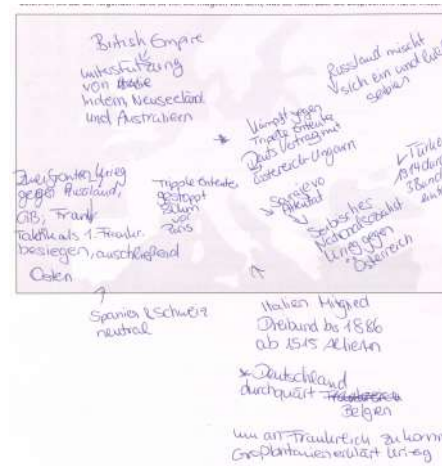 British Empire
unterstützung
von
Indern, Neuseeland
und Australiern
Russland mischt
sich ein und
Serbien
kämpft gegen
Tripple Entente
Deuts Vertrag mit
Österreich-Ungarn
Zwei Fronten Krieg
gegen Russland,
GB, Frankr
Taktik als 1. Frankr.
besiegen, anschließend
Osten
Tripple Entente
gestoppt
vor
Paris
Sarajevo
Attentat
Serbisches
Nationalsozialist
Krieg gegen
Österreich
Türkei
1914
3Bund
Spanien & Schweiz
neutral
Italien Mitglied
Dreibund bis 1886
ab 1515 Alliierten
* Deutschland
durchquärt
Belgien
um an Frankreich zu komm
Großbritannien erklärt Krieg